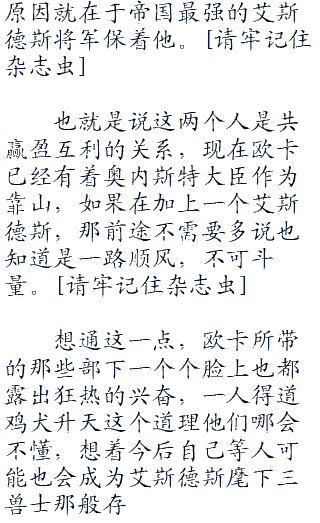 原因就在于帝国最强的艾斯
德斯将军保着他。[请牢记住
杂志虫]
也就是说这两个人是共
赢盈互利的关系，现在欧卡
已经有着奥内斯特大臣作为
靠山，如果在加上一个艾斯
德斯，那前途不需要多说也
知道是一路顺风，不可斗
量。[请牢记住杂志虫]
想通这一点，欧卡所带
的那些部下一个个脸上也都
露出狂热的兴奋，一人得道
鸡犬升天这个道理他们哪会
不懂，想着今后自己等人可
能也会成为艾斯德斯麾下三
兽士那般存